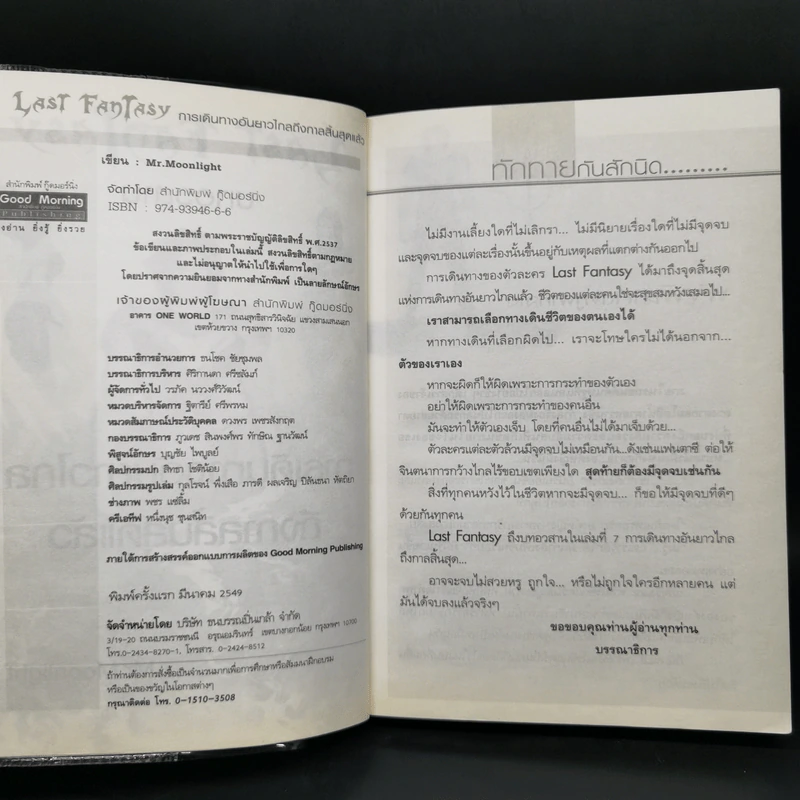 LAST FANTASY การเดินทางอันยาวไกลถึงกาลสิ้นสุดแล้ว
เขียน : Mr.Moonlight
สำนักพิมพ์ กู๊ดมอร์นิ่ง
Good Morning
Publishing
ยิ่งอ่าน ยิ่งรู้ ยิ่งรวย
จัดทำโดย สำนักพิมพ์ กู๊ดมอร์นิ่ง
ISBN : 974-93946-6-6
สงวนลิขสิทธิ์ ตามพระราชบัญญัติลิขสิทธิ์ พ.ศ.2537
ข้อเขียนและภาพประกอบในเล่มนี้ สงวนลิขสิทธิ์ตามกฎหมาย
และไม่อนุญาตให้นำไปใช้เพื่อการใดๆ
โดยปราศจากความยินยอมจากทางสำนักพิมพ์ เป็นลายลักษณ์อักษร
เจ้าของผู้พิมพ์ผู้โฆษณา สำนักพิมพ์ กู๊ดมอร์นิ่ง
อาคาร ONE WORLD 171 ถนนสุทธิสารวินิจฉัย แขวงสามเสนนอก
เขตห้วยขวาง กรุงเทพฯ 10320
บรรณาธิการอำนวยการ ธนโชค ชัยชุมพล
บรรณาธิการบริหาร ศิริกานดา ศรีชลัมภ์
ผู้จัดการทั่วไป วรภัค นววงศ์วิวัฒน์
หมวดบริหารจัดการ ฐิตารีย์ ศรีพรหม
หมวดสัมภาษณ์ประวัติบุคคล ดวงพร เพชรสังกฤต
กองบรรณาธิการ ภูวเดช สินพงศ์พร ทักษิณ ฐานวัฒน์
พิสูจน์อักษร บุญชัย ไพบูลย์
ศิลปกรรมปก สิทธา โชติน้อย
ศิลปกรรมรูปเล่ม กุลโรจน์ พึ่งเสือ ภารดี ผลเจริญ ปิลันธนา หัตถิยา
ช่างภาพ พชร แซ่ลิ้ม
ครีเอทีฟ หนึ่งนุช ชุนสนิท
ภายใต้การสร้างสรรค์ออกแบบการผลิตของ Good Morning Publishing
พิมพ์ครั้งแรก มีนาคม 2549
จัดจำหน่ายโดย บริษัท ธนบรรณปิ่นเกล้า จำกัด
3/19-20 ถนนบรมราชชนนี อรุณอมรินทร์ เขตบางกอกน้อย กรุงเทพฯ 10700
โทร.0-2434-8270-1, โทรสาร. 0-2424-8512
ถ้าท่านต้องการสั่งซื้อเป็นจำนวนมากเพื่อการศึกษาหรือสัมมนาฝึกอบรม
หรือเป็นของขวัญในโอกาสต่างๆ
กรุณาติดต่อ โทร. 0-1510-3508
ทักทายกันสักนิด.........
ไม่มีงานเลี้ยงใดที่ไม่เลิกรา... ไม่มีนิยายเรื่องใดที่ไม่มีจุดจบ
และจุดจบของแต่ละเรื่องนั้นขึ้นอยู่กับเหตุผลที่แตกต่างกันออกไป
การเดินทางของตัวละคร Last Fantasy ได้มาถึงจุดสิ้นสุด
แห่งการเดินทางอันยาวไกลแล้ว ชีวิตของแต่ละคนใช่จะสุขสมหวังเสมอไป...
เราสามารถเลือกทางเดินชีวิตของตนเองได้
หากทางเดินที่เลือกผิดไป... เราจะโทษใครไม่ได้นอกจาก...
ตัวของเราเอง
หากจะผิดก็ให้ผิดเพราะการกระทำของตัวเอง
อย่าให้ผิดเพราะการกระทำของคนอื่น
มันจะทำให้ตัวเองเจ็บ โดยที่คนอื่นไม่ได้มาเจ็บด้วย...
ตัวละครแต่ละตัวล้วนมีจุดจบไม่เหมือนกัน...ดังเช่นแฟนตาซี ต่อให้
จินตนาการกว้างไกลไร้ขอบเขตเพียงใด สุดท้ายก็ต้องมีจุดจบเช่นกัน
สิ่งที่ทุกคนหวังไว้ในชีวิตหากจะมีจุดจบ... ก็ขอให้มีจุดจบที่ดีๆ
ด้วยกันทุกคน
Last Fantasy ถึงบทอวสานในเล่มที่ 7 การเดินทางอันยาวไกล
ถึงกาลสิ้นสุด...
อาจจะจบไม่สวยหรู ถูกใจ... หรือไม่ถูกใจใครอีกหลายคน แต่
มันได้จบลงแล้วจริงๆ
ขอขอบคุณท่านผู้อ่านทุกท่าน
บรรณาธิการ